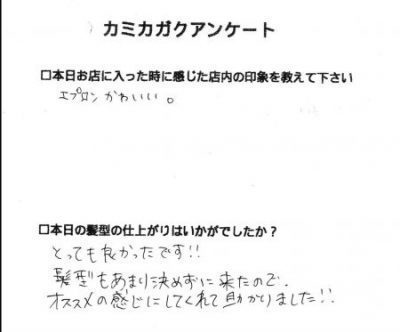 カミカガクアンケート
□本日お店に入った時に感じた店内の印象を教えて下さい
エプロンかわいい。
□本日の髪型の仕上がりはいかがでしたか？
とっても良かったです!!
髪型もあまり決めずに来たので、
オススメの感じにしてくれて助かりました!!